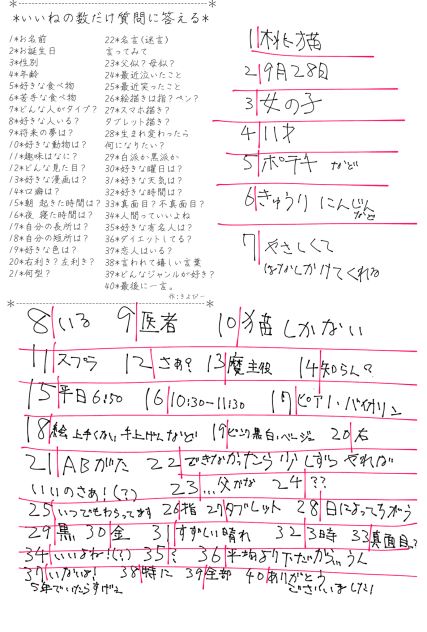 *いいねの数だけ質問に答える*
1*お名前
2*お誕生日
3*性別
4*年齢
5*好きな食べ物
6*苦手な食べ物
7*どんな人がタイプ?
8*好きな人いる?
9*将来の夢は?
10*好きな動物は?
11*趣味はなに?
12*どんな見た目?
13*好きな漫画は?
14*口癖は?
15*朝 起きた時間は?
16*夜 寝た時間は?
17*自分の長所は?
18*自分の短所は?
19*好きな色は?
20*右利き?左利き?
21*何型?
22*名言(迷言)
言ってみて
23*父似?母似?
24*最近泣いたこと
25*最近笑ったこと
26*絵描きは指?ペン?
27*スマホ描き?
タブレット描き?
28*生まれ変わったら
何になりたい?
29*白派か黒派か
30*好きな曜日は?
31*好きな天気は?
32*好きな時間は?
33*真面目?不真面目?
34*人間っていいよね
35*好きな有名人は?
36*ダイエットしてる?
37*恋人はいる?
38*言われて嬉しい言葉
39*どんなジャンルが好き?
40*最後に一言。
作:きよぴー
1 桃猫
2 9月28日
3 女の子
4 11才
5 ポテチ など
6 きゅうり にんじん
など
7 やさしくて
はなしかけてくれる
8 いる 9 医者 10 猫しかない
11 スプラ 12 さあ? 13 魔主役 14 知らん?
15 平日6:50 16 10:30-11:30 17 ピアノ・バイオリン
18 絵 上手くない 手上げんなど 19 ピンク 黒白・ベージュ 20 右
21 ABがた 22 できなかったら少しずつやれば
いいのさぁ!(?) 23 …父かな 24 ??
25 いつでもわらってます 26 指 27 タブレット 28 日によってちがう
29 黒 30 金 31 すずしい晴れ 32 3時 33 真面目?
34 いいよね!(?) 35 ? 36 平均より下だから…うん
37 いないよ! 38 特に 39 全部 40 ありがとう
5年でいたらすげぇ ございました!